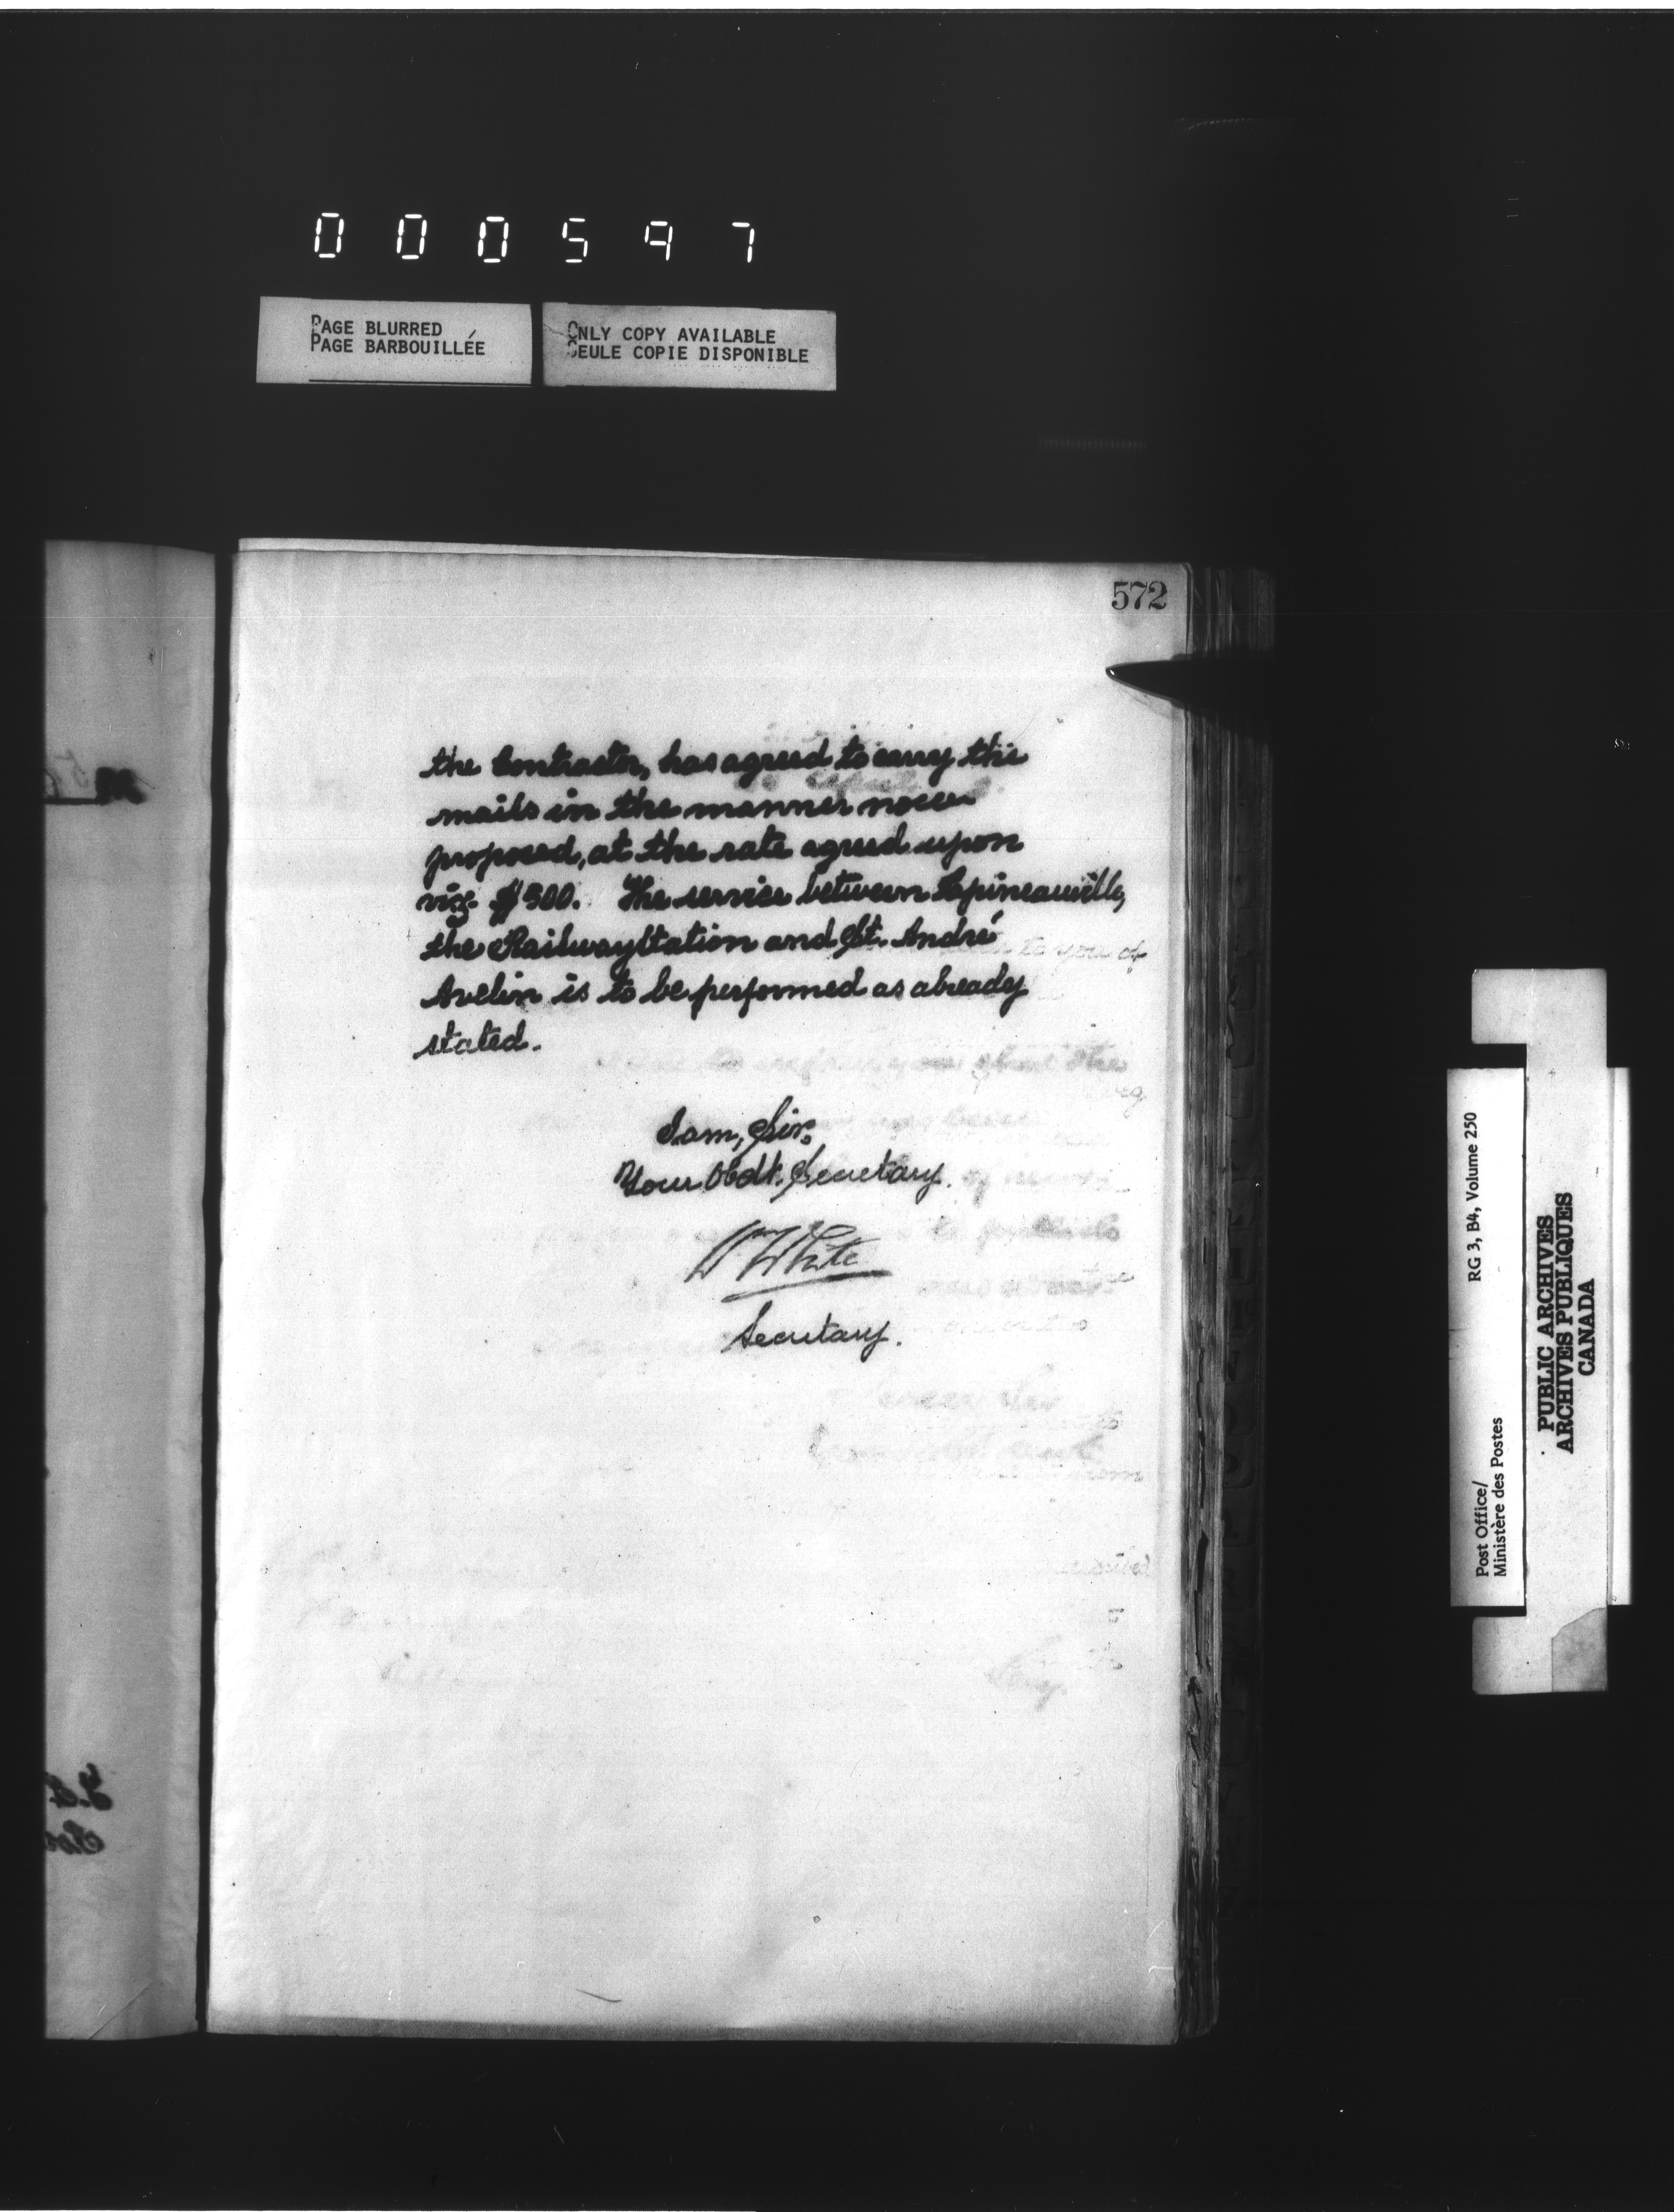 000597
PAGE BLURRED
PAGE BARBOUILLÉE
ONLY COPY AVAILABLE
SEULE COPIE DISPONIBLE
572
the Contractor, has agreed to carry the
mails in the manner now
proposed, at the rate agreed upon
viz. $500. The service between Papineauville,
the Railway Station and St. André
Avelin is to be performed as already
stated.
to you of
I am, Sir,
Your Obdt. Secretary.
W White
Secretary.
Post Office/
Ministère des Postes
RG 3, B4, Volume 250
PUBLIC ARCHIVES
ARCHIVES PUBLIQUES
CANADA